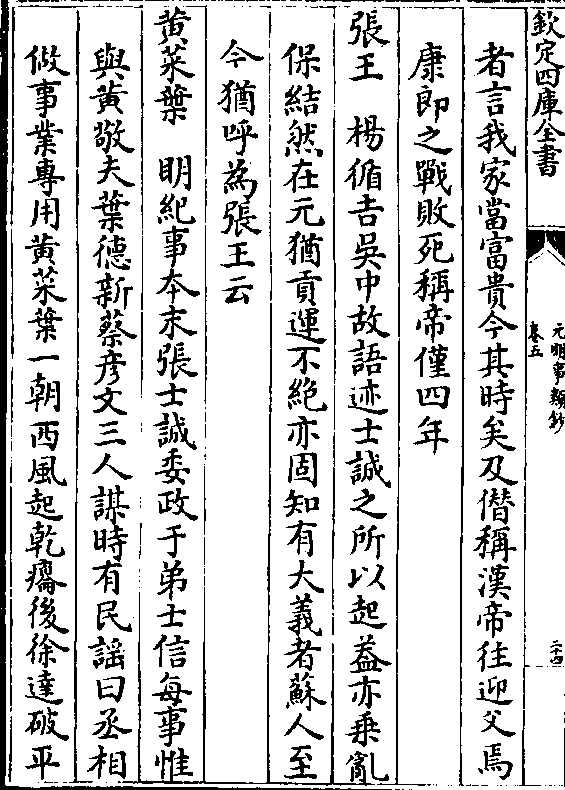 欽定四庫全書
元明事類鈔
卷五
二十四
者言我家當富貴今其時矣及僭稱漢帝往迎父焉
康郎之戰敗死稱帝僅四年
張王　楊循吉吳中故語迹士誠之所以起葢亦乗亂
保結然在元猶貢運不絶亦固知有大義者蘇人至
今猶呼為張王云
黄菜葉　明紀事本末張士誠委政于弟士信每事惟
與黄敬夫葉德新蔡彦文三人謀時有民謡曰丞相
做事業專用黄菜葉一朝西風起乾癟後徐達破平